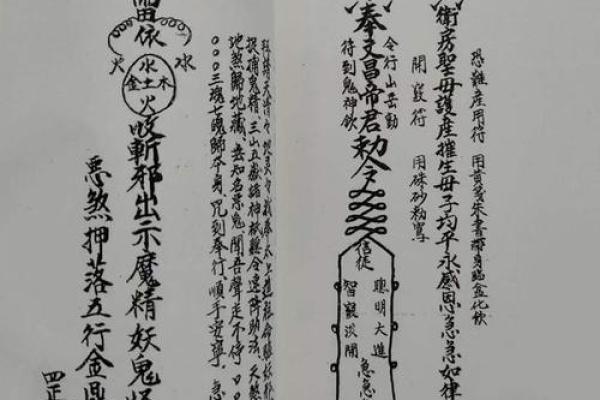 恐難產用符　用黃箋朱書帶身臨盆化飲
衛房聖母護產催生母子均平永感恩急急如律
開竅符　用硃砂粉寫
令行山岳動
奉文昌帝君勅令
待到鬼神欽
信徒
聰明大進
智竅淡開
急急
拜請天清
捉捕鬼精三山五嶽諸神祇聽令速降助法
地煞歸地藏去知名惡鬼聞吾聲走不停
○○○三魂七魄歸本身咒到奉行順手安寧急
雷依
水
火
水
金土木
火
收斬邪出示魔精妖鬼怪
惡煞押落五行金鼎
四正